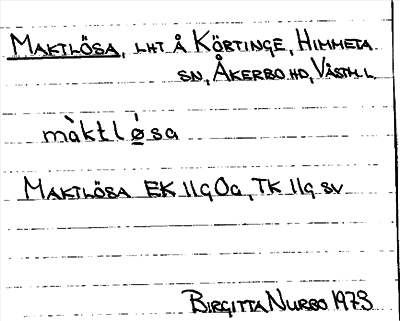 MAKTLÖSA, LHT Å KÖRTINGE, HIMMETA
SN, ÅKERBO HD, VÄSTM. L.
màktlǿ̲sa
MAKTLÖSA EK 11g0a, TK 11g SV
BIRGITTA NURBO 1973